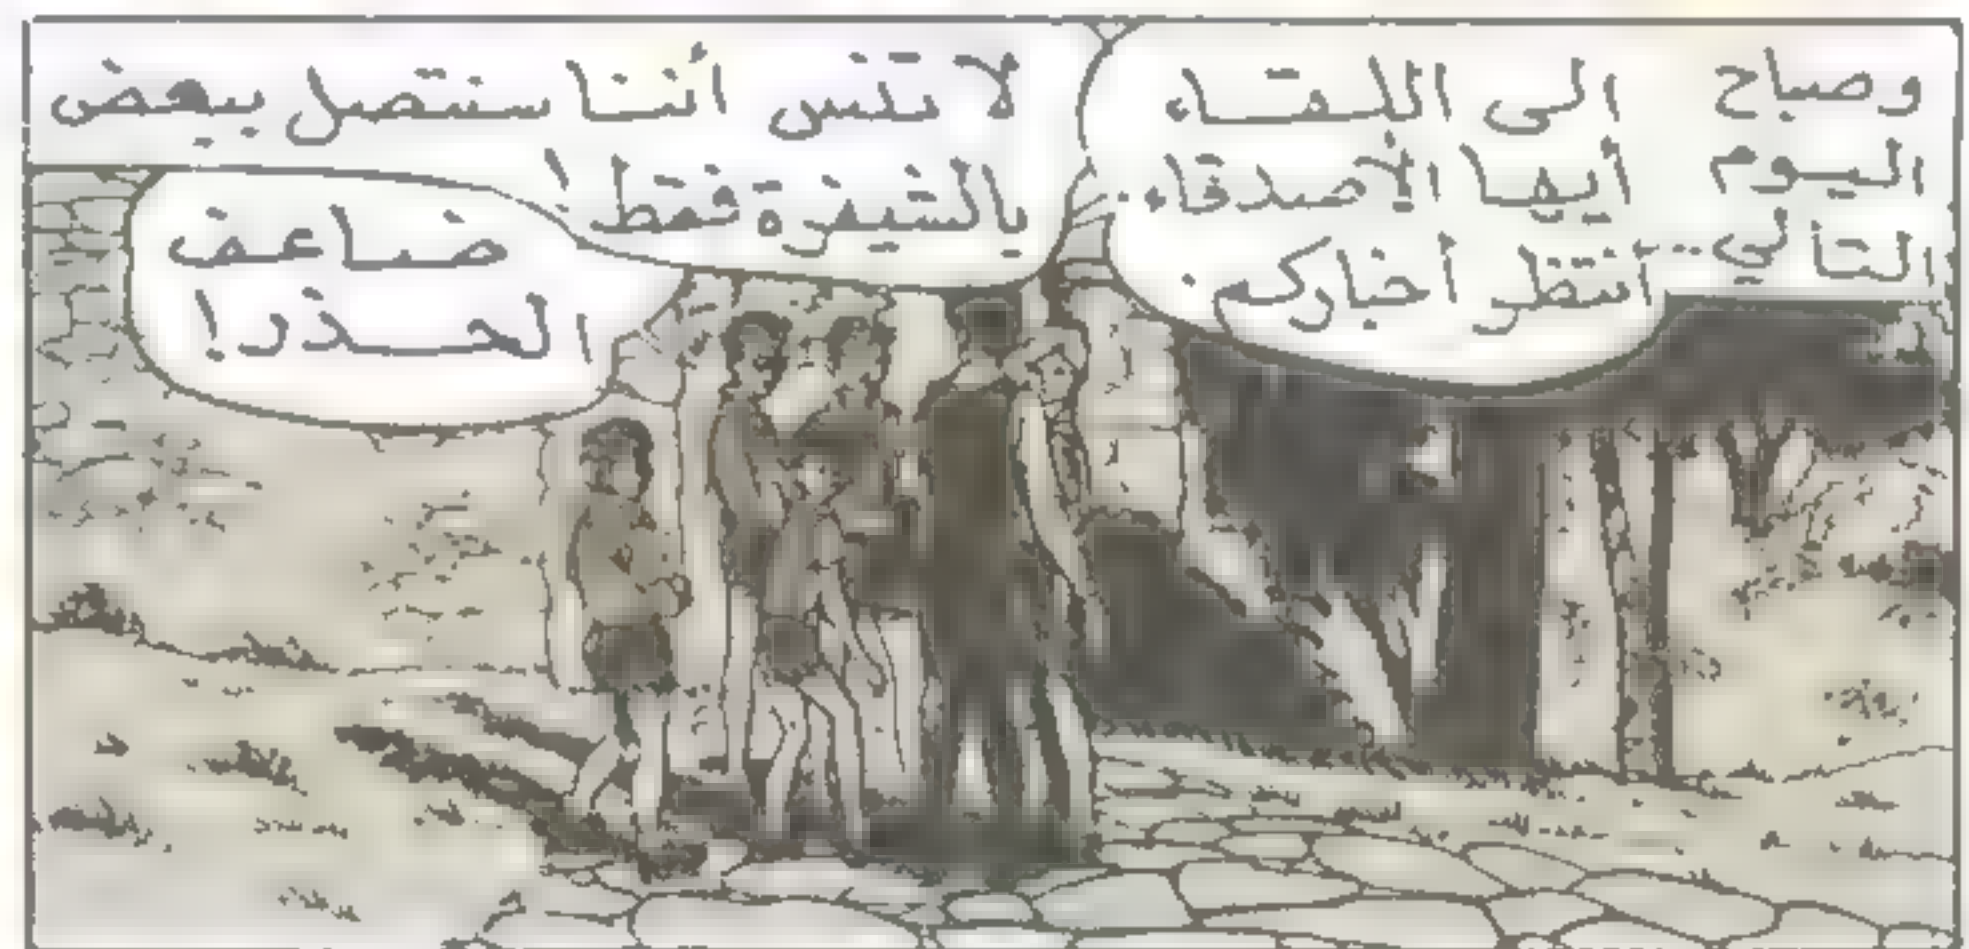 وصباح
اليوم
التالي..
الى اللقاء
أيها الأصدقاء..
انتظر أخباركم.
لا تنس أننا سنتصل ببعض
بالشيفرة فقط!
ضاعف
الحذر!